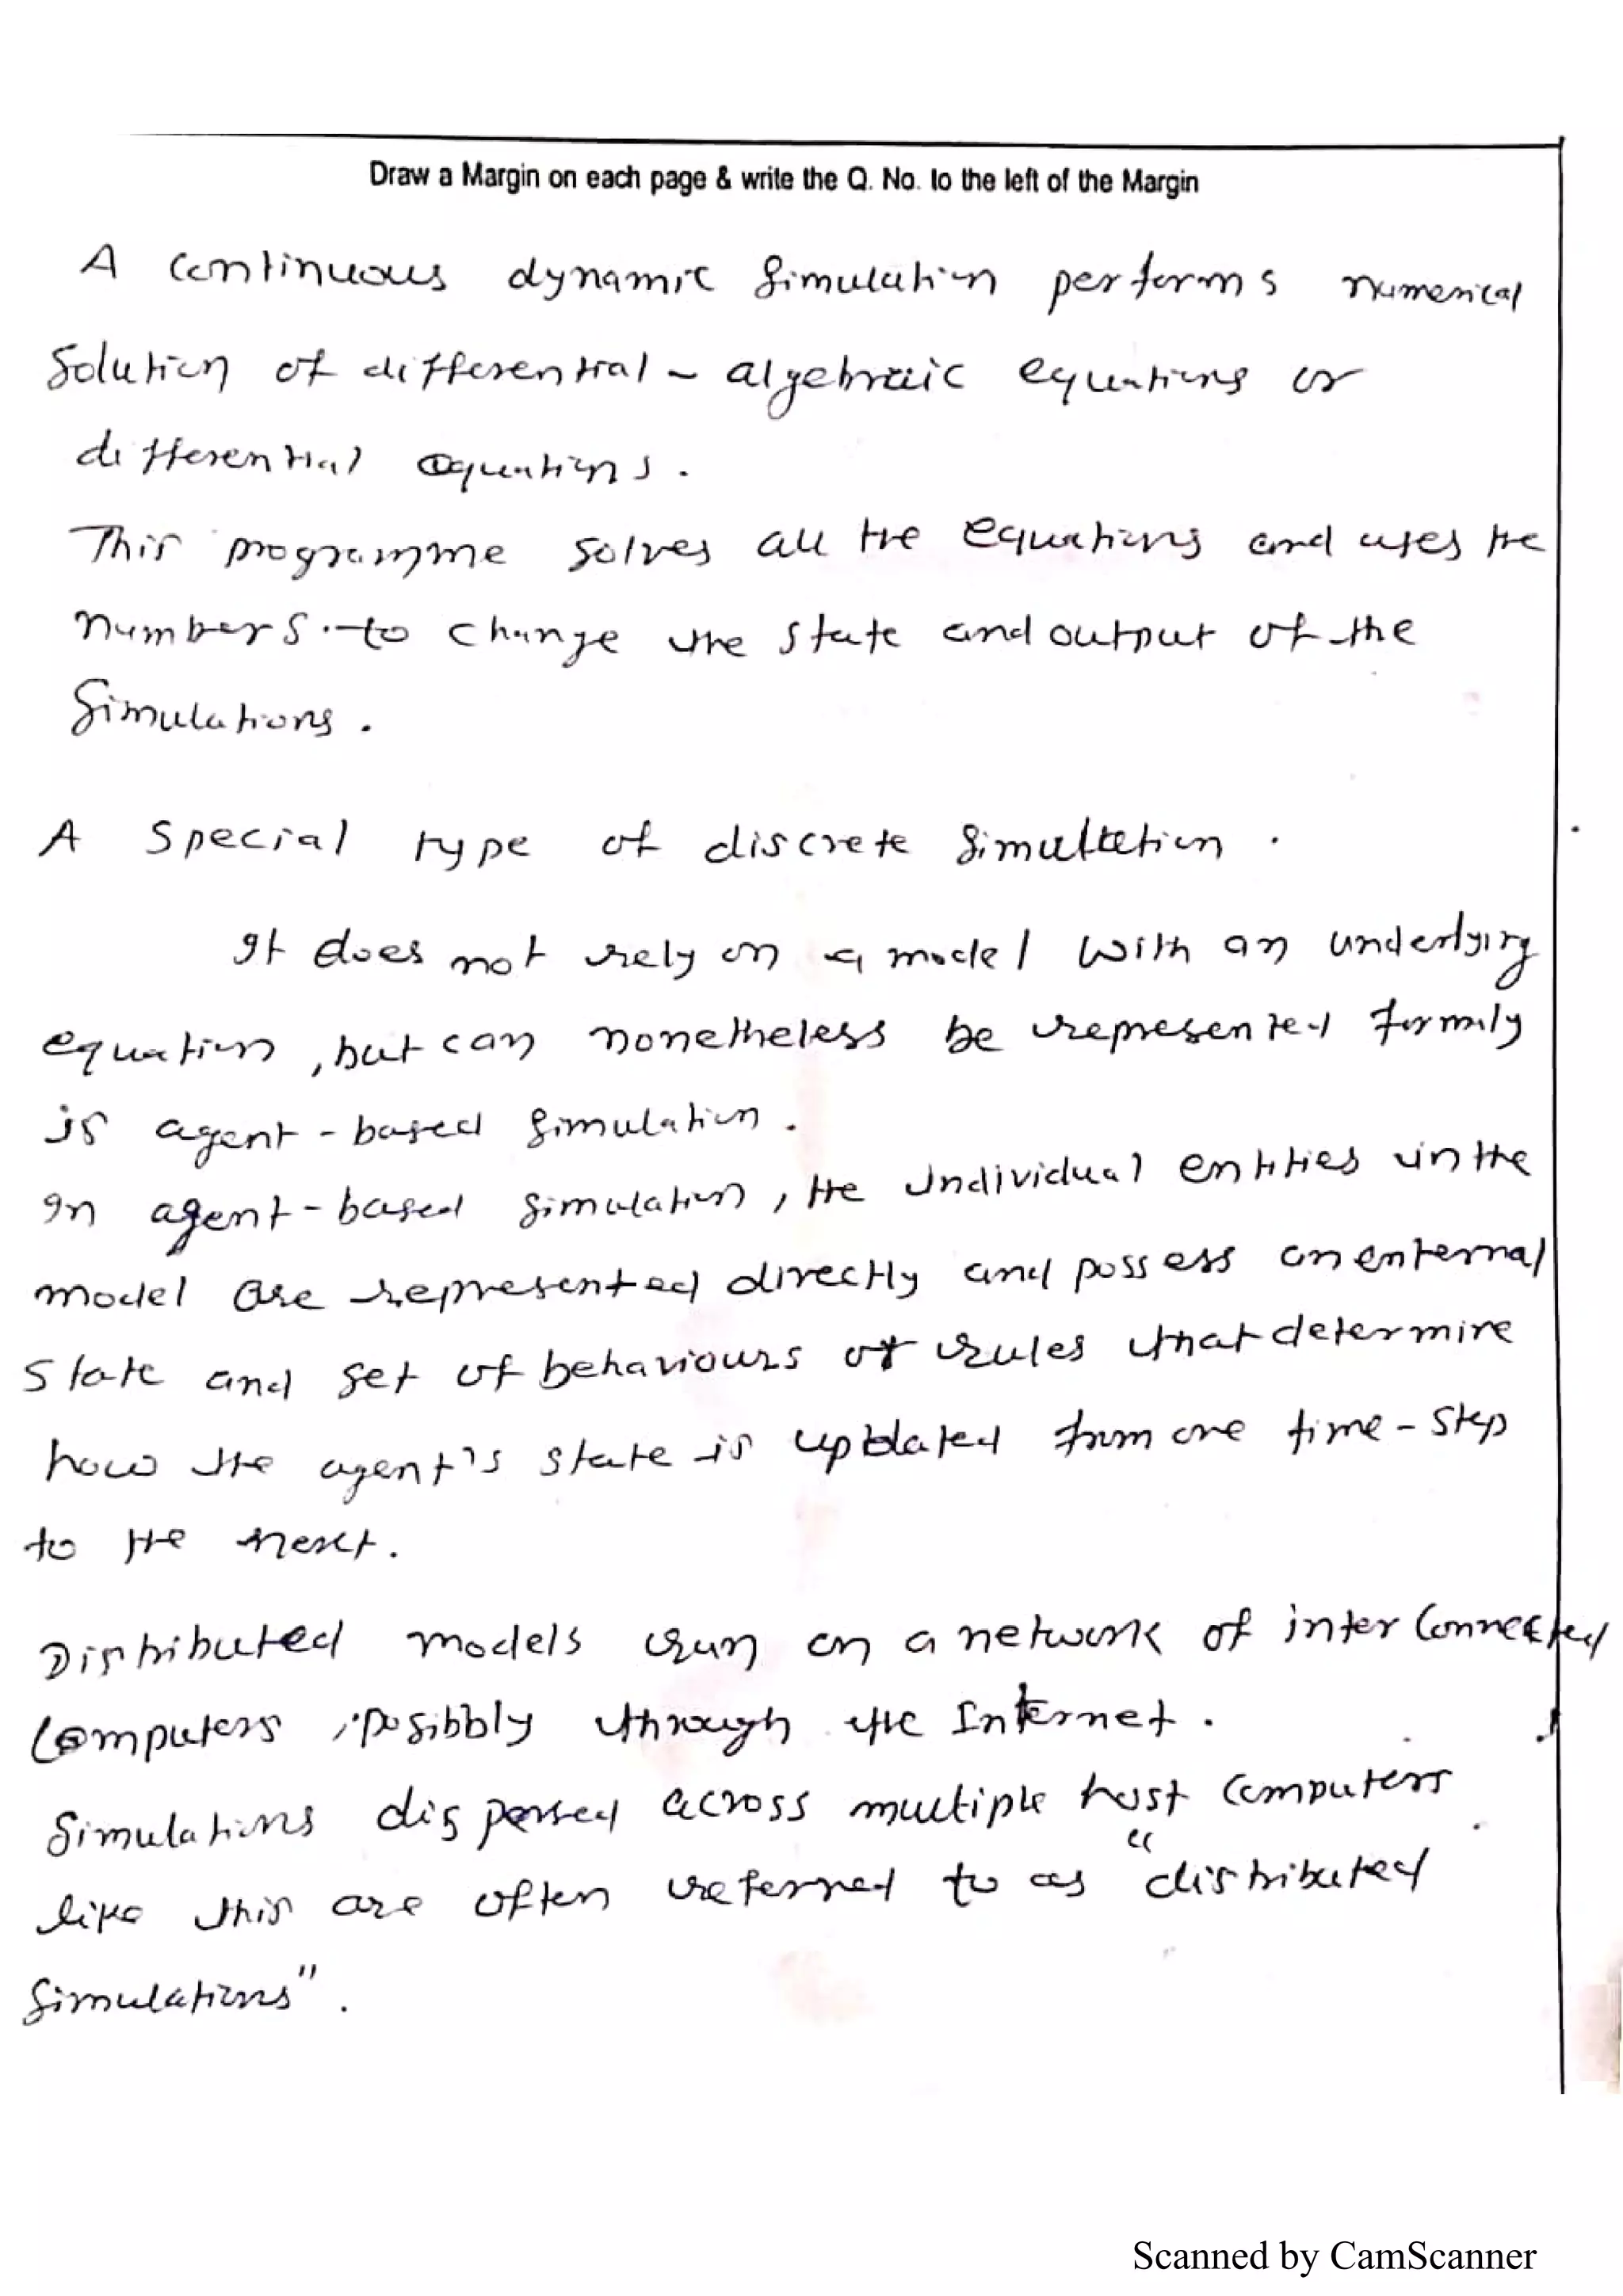 Draw a Margin on each page & write the Q. No. to the left of the Margin
A continuous dynamic Simulation performs numerical
Solution of differential - algebraic equations or
differential equations.
This programme solves all the equations and uses the
numbers to change the state and output of the
Simulations.
A Special type of discrete Simultation.
It does not rely on a model with an underlying
equation, but can nonetheless be represented formly
is agent-based Simulation.
In agent-based Simulation, the Individual entities in the
model are represented directly and possess an enternal
State and set of behaviours or rules that determine
how the agent's state is updated from one time-step
to the next.
Distributed models run on a network of inter Connected
Computers, posibbly through the Internet.
Simulations dispersed across multiple host Computers
like this are often referred to as "distributed
Simulations".
Scanned by CamScanner